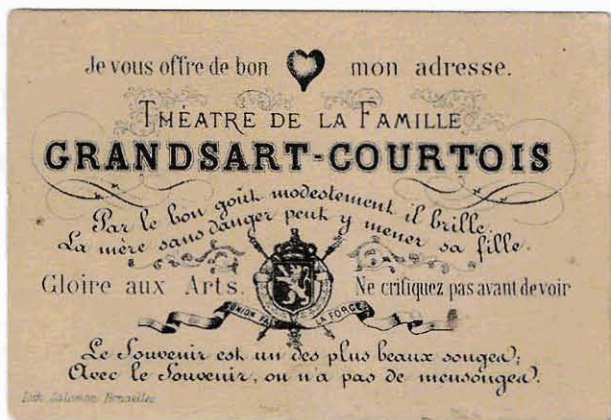 Je vous offre de bon mon adresse.
THÉATRE DE LA FAMILLE
GRANDSART-COURTOIS
Par le bon goût modestement il brille,
La mère sans danger peut y mener sa fille.
Gloire aux Arts. Ne critiquez pas avant de voir
UNION FAIT LA FORCE
Le Souvenir est un des plus beaux songes;
Avec le Souvenir, on n'a pas de mensonges.
Lith. Salomon Bruxelles